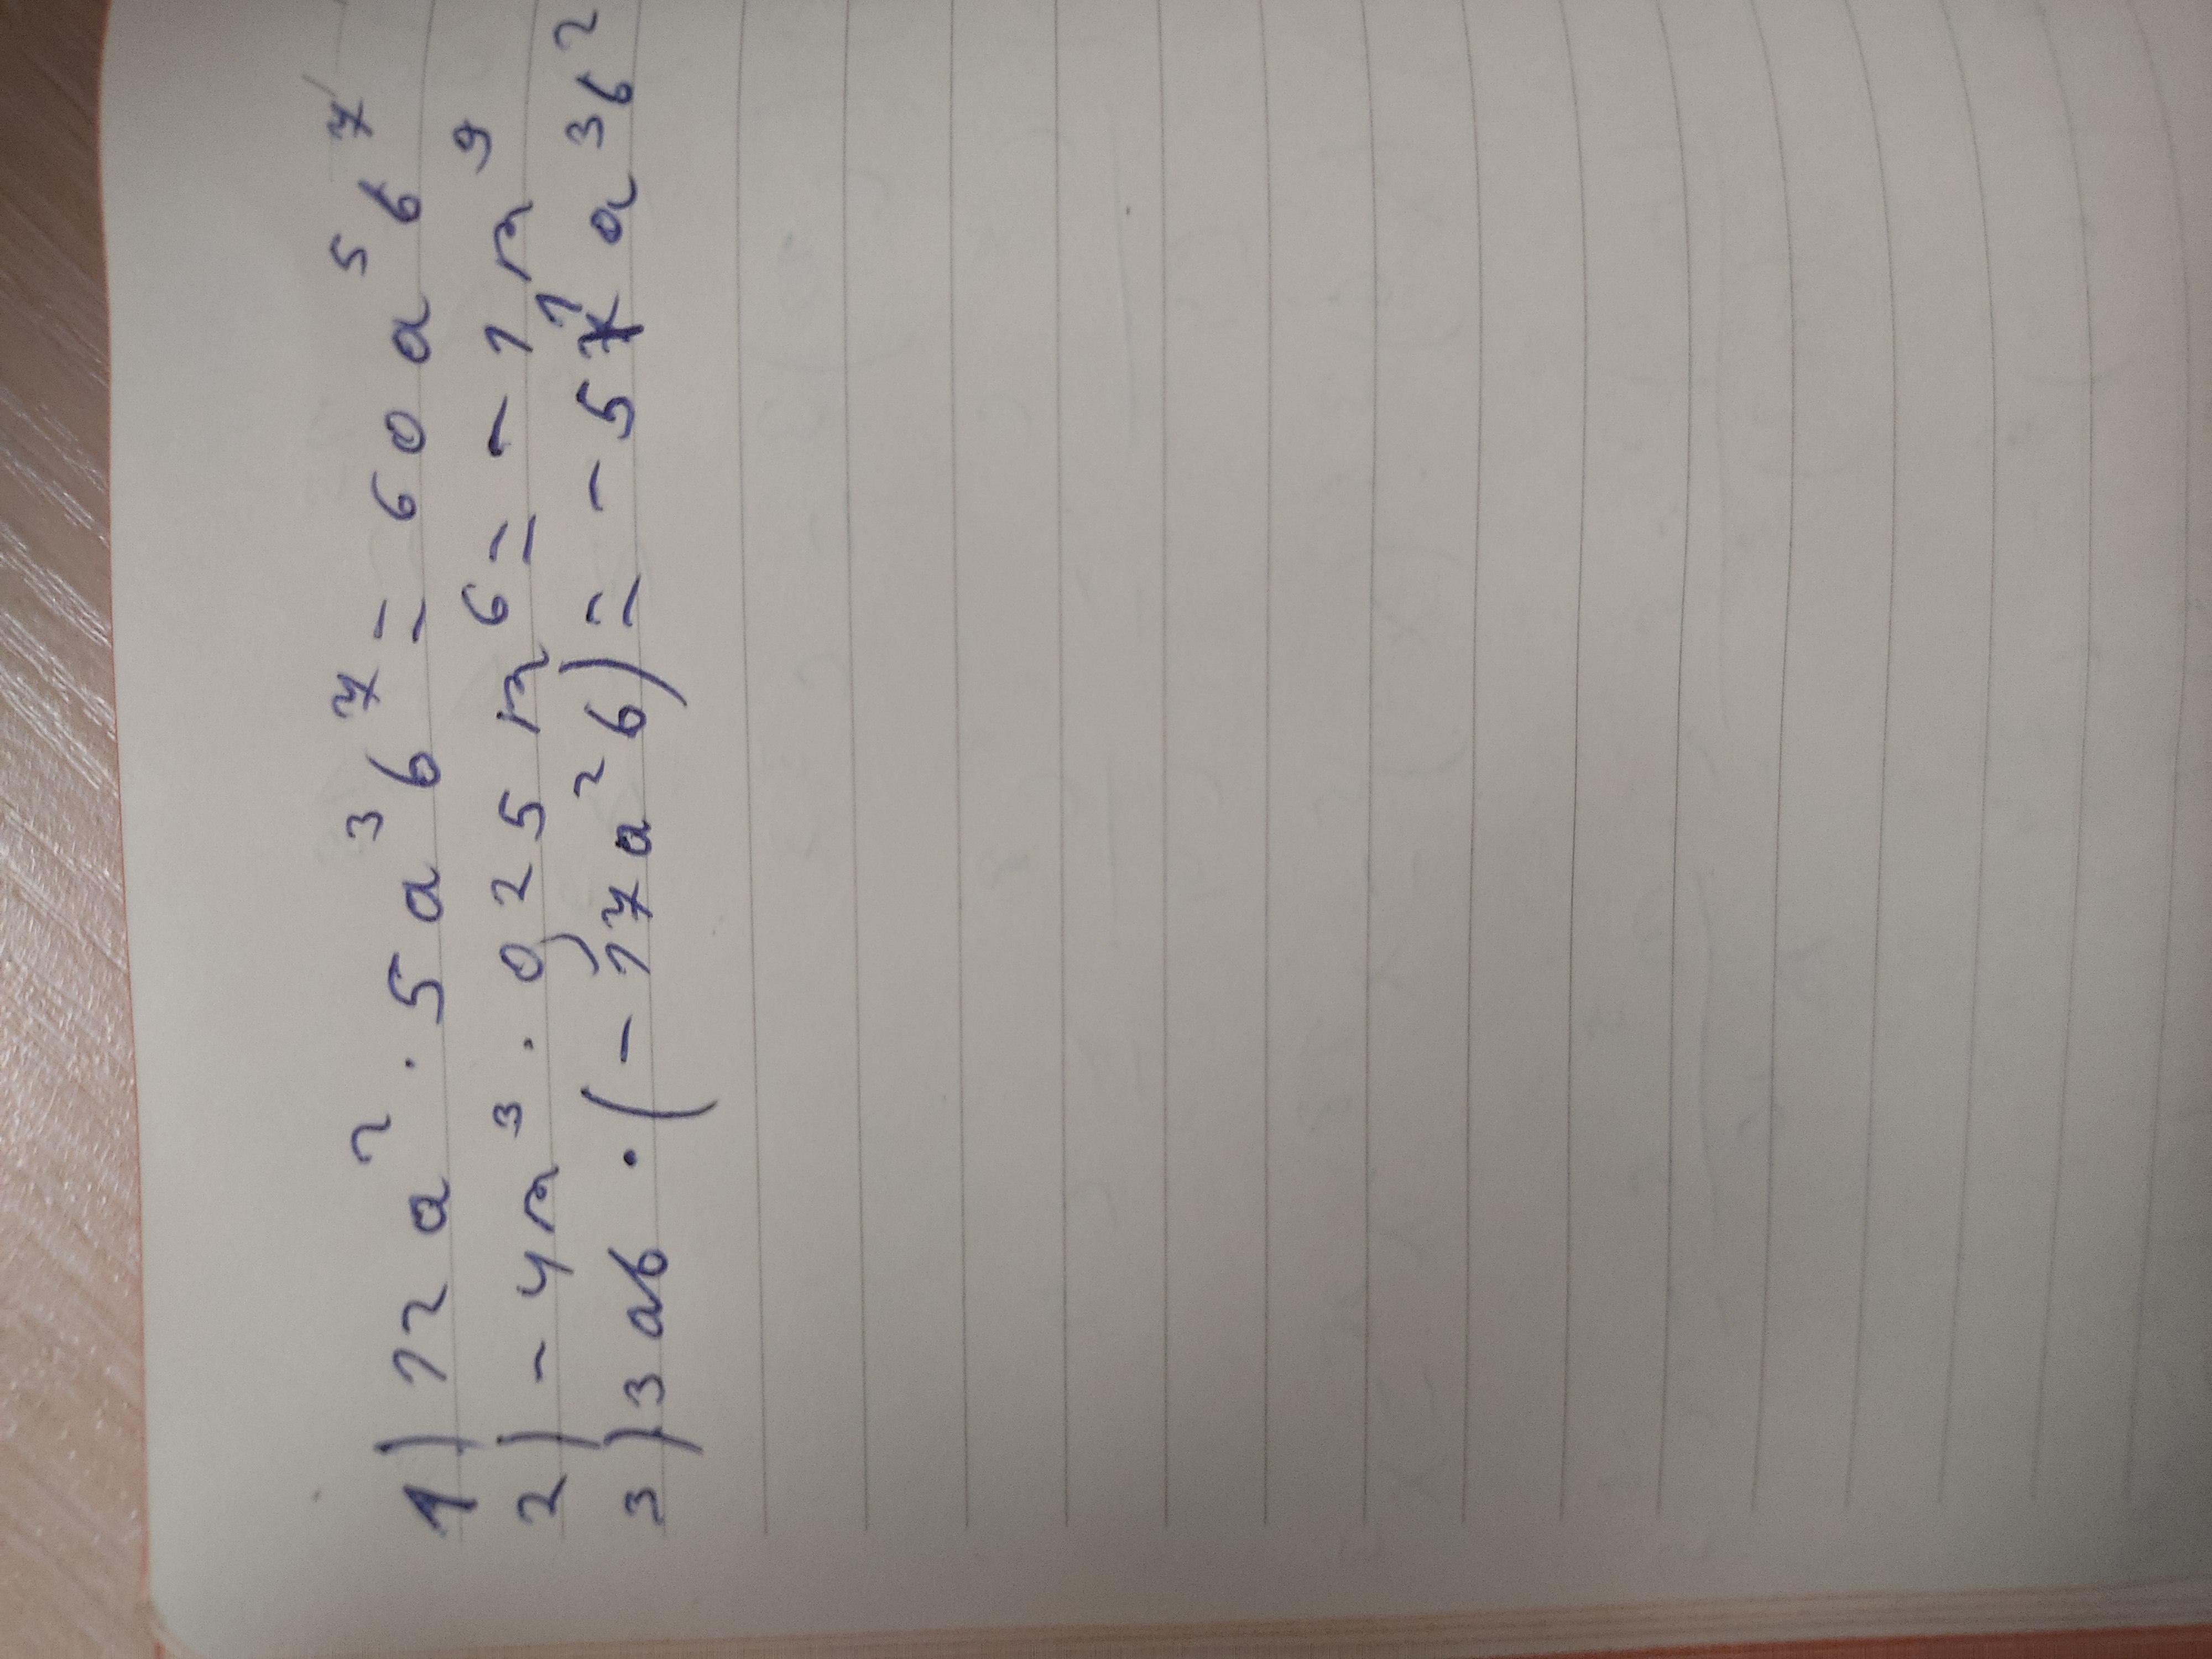 1) 12a²·5a³b⁷=60a⁵b⁷
2) -4n³·0,25n⁶=-1n⁹
3) 3ab·(-17a²b)=-51a³b²